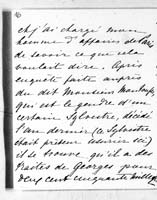 et j'ai chargé mon
homme d'affaires de Paris
de savoir ce que cela
voulait dire. Après
enquête faite auprès
du dit Monsieur
qui est le gendre d'un
certain Sylvestre, décédé
l'an dernier (ce Sylvestre
était prêteur usurier sic)
il se trouve qu'il a des
traites de Georges pour
deux cent cinquante mille